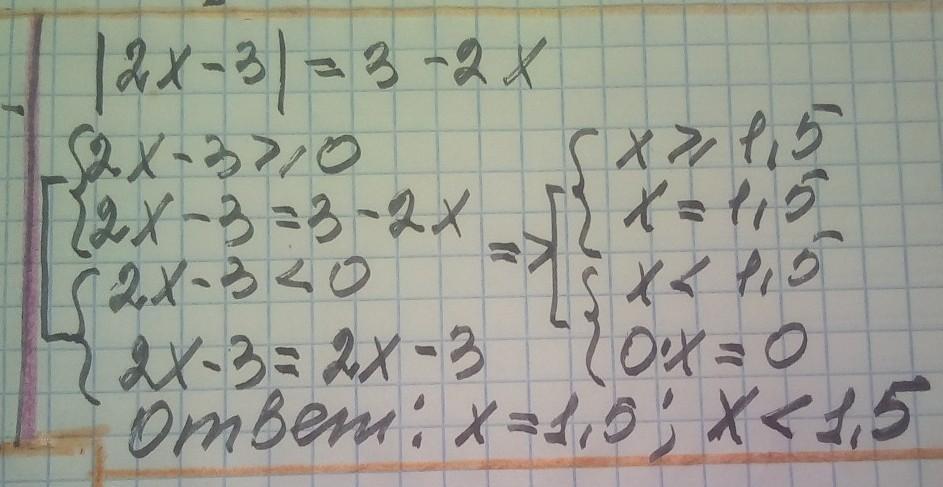 |2x-3|=3-2x
2x-3⩾0
2x-3=3-2x
2x-3<0
2x-3=2x-3
=>
x⩾1,5
x=1,5
x<1,5
0·x=0
Ответ: x=1,5; x<1,5